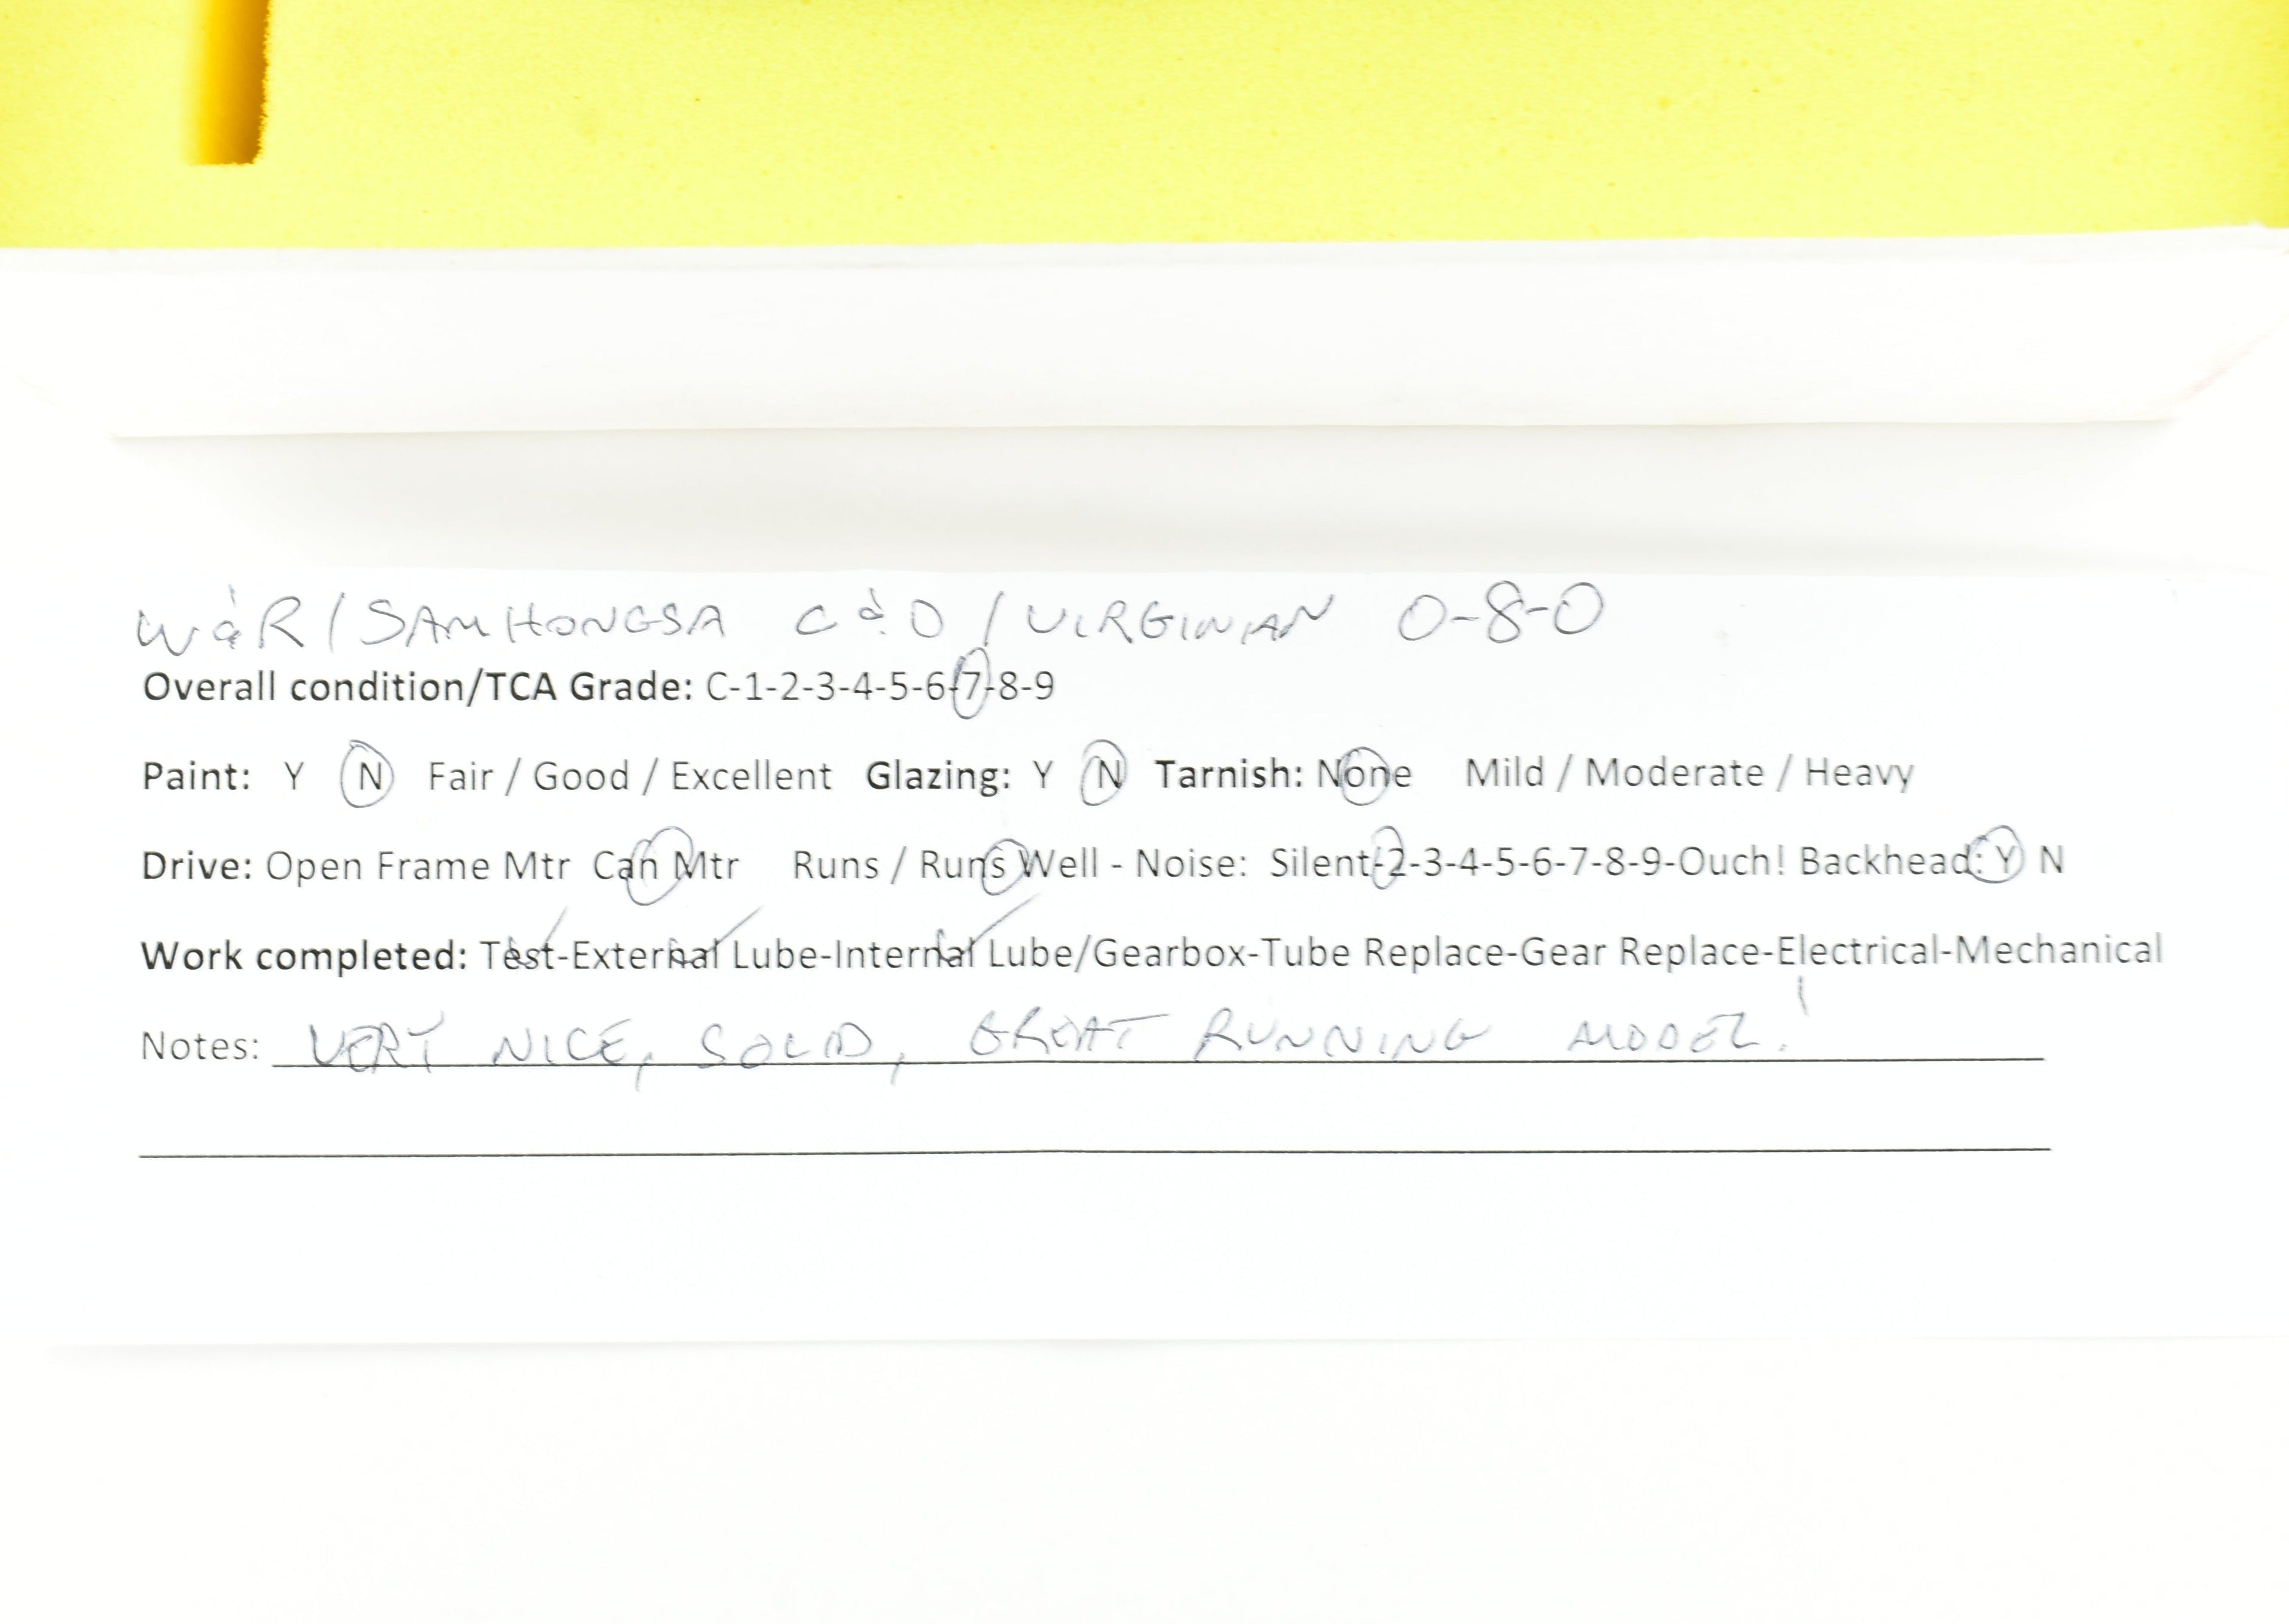 W&R/SAMHONGSA C&O/VIRGINIAN 0-8-0
Overall condition/TCA Grade: C-1-2-3-4-5-6-7-8-9
Paint: Y N Fair / Good / Excellent Glazing: Y N Tarnish: None Mild / Moderate / Heavy
Drive: Open Frame Mtr Can Mtr Runs / Runs Well - Noise: Silent-2-3-4-5-6-7-8-9-Ouch! Backhead: Y N
Work completed: Test-External Lube-Internal Lube/Gearbox-Tube Replace-Gear Replace-Electrical-Mechanical
Notes: VERY NICE, SOLID, GREAT RUNNING MODEL!